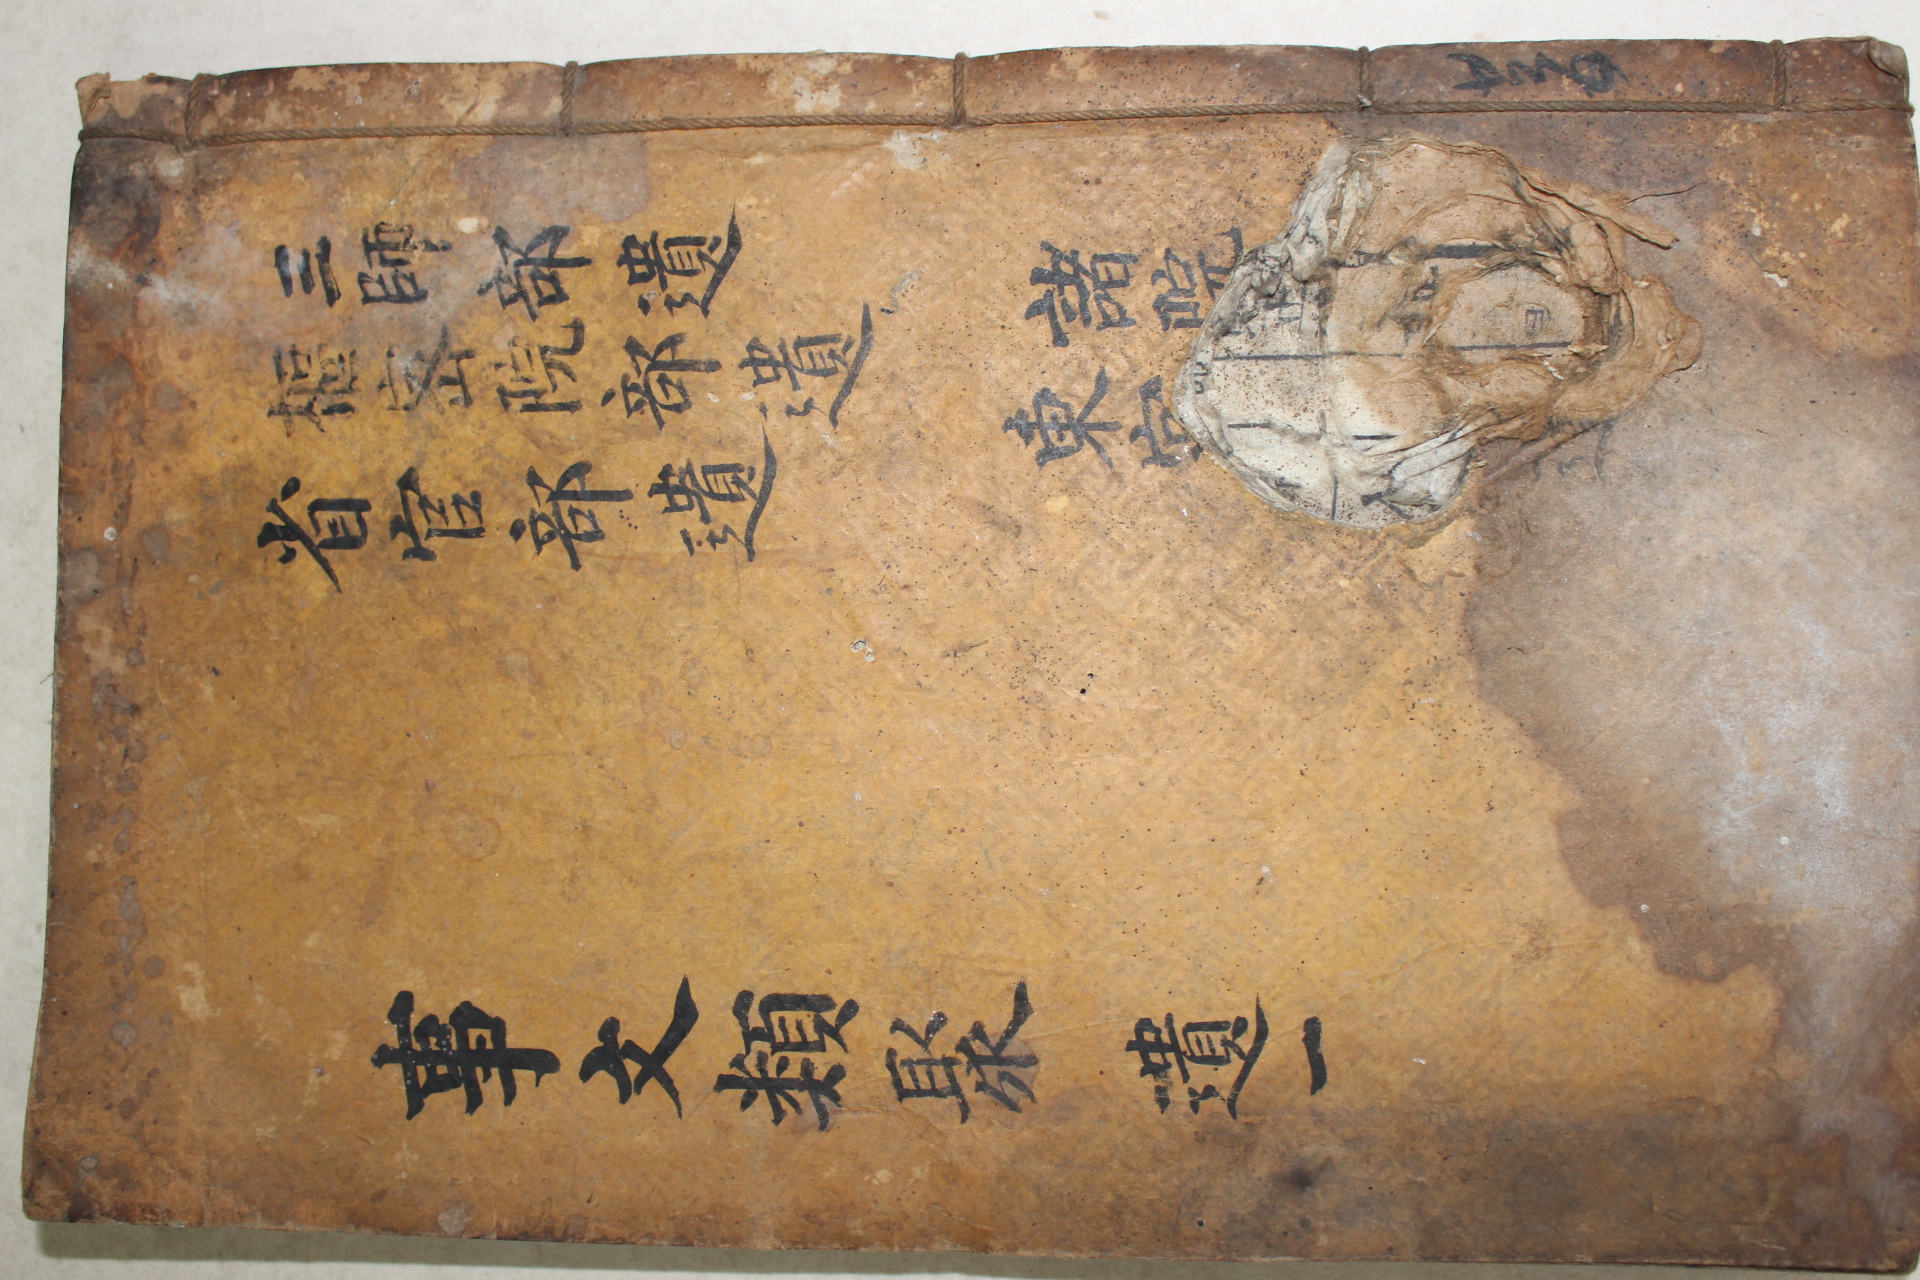 三師部遺
樞密院部遺
省官部遺
諸院
東宮
事文類聚 遺一